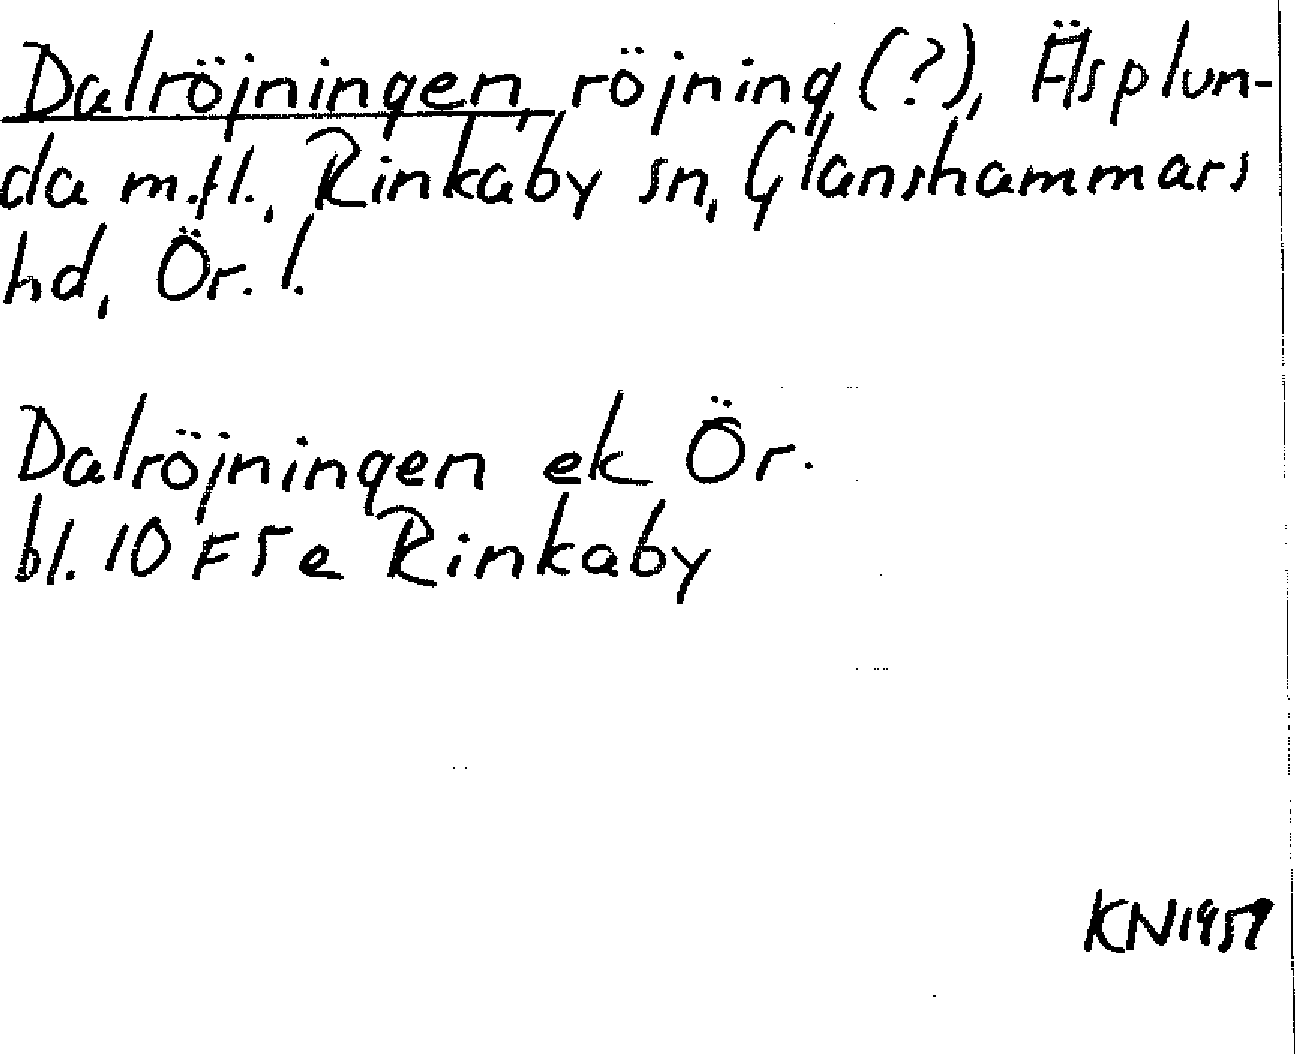 Dalröjningen, röjning (?), Äsplun-
da m.fl., Rinkaby sn, Glanshammars
hd, Ör. l.
Dalröjningen ek Ör.
bl. 10 F 5 e Rinkaby
KN 1959